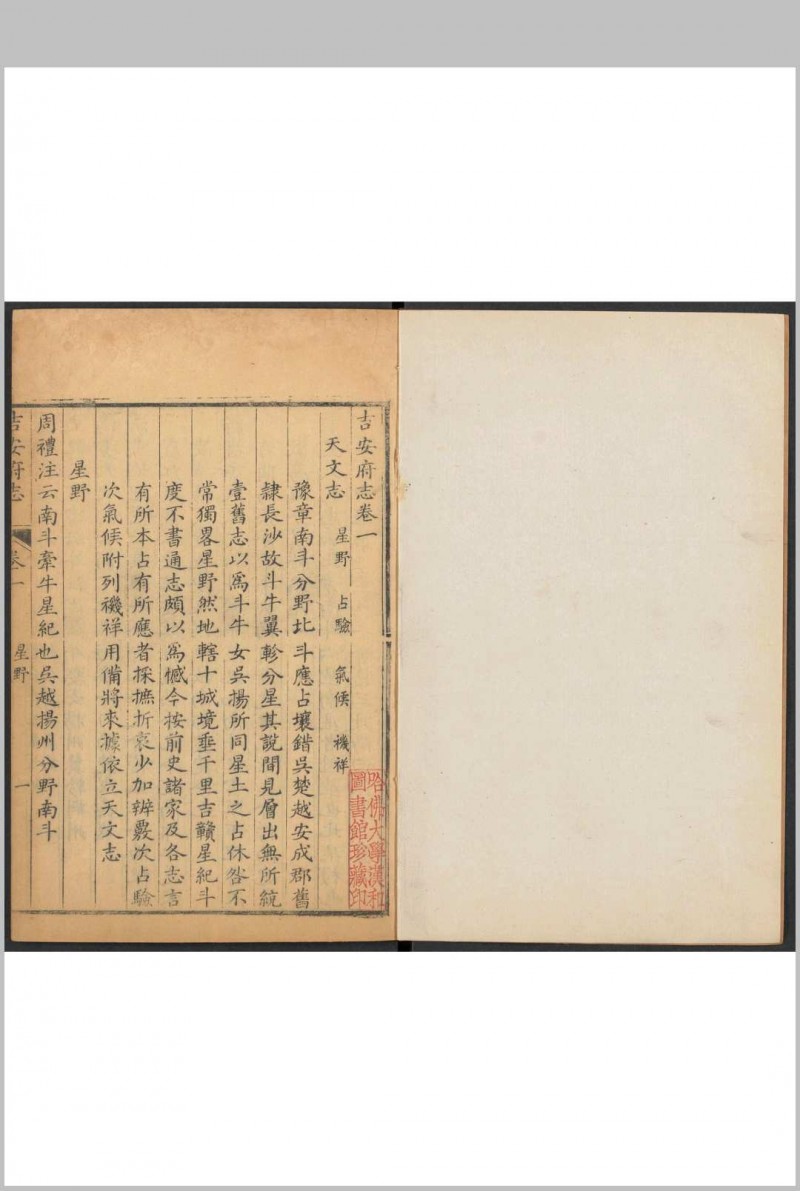 吉安府志卷一
天文志　星野　占驗　氣候　禨祥
豫章南斗分野北斗應占壤錯吳楚越安成郡舊
隸長沙故斗牛翼軫分星其說間見層出無所統
壹舊志以為斗牛女吳揚所同星土之占休咎不
常獨畧星野然地轄十城境垂千里吉贛星紀斗
度不書通志頗以為憾今按前史諸家及各志言
有所本占有所應者採摭折衷少加辨覈次占驗
次氣候附列禨祥用備將來據依立天文志
星野
周禮注云南斗牽牛星紀也吳越揚州分野南斗
吉安府志　卷一　星野　一
哈佛大學漢和
圖書館珍藏印